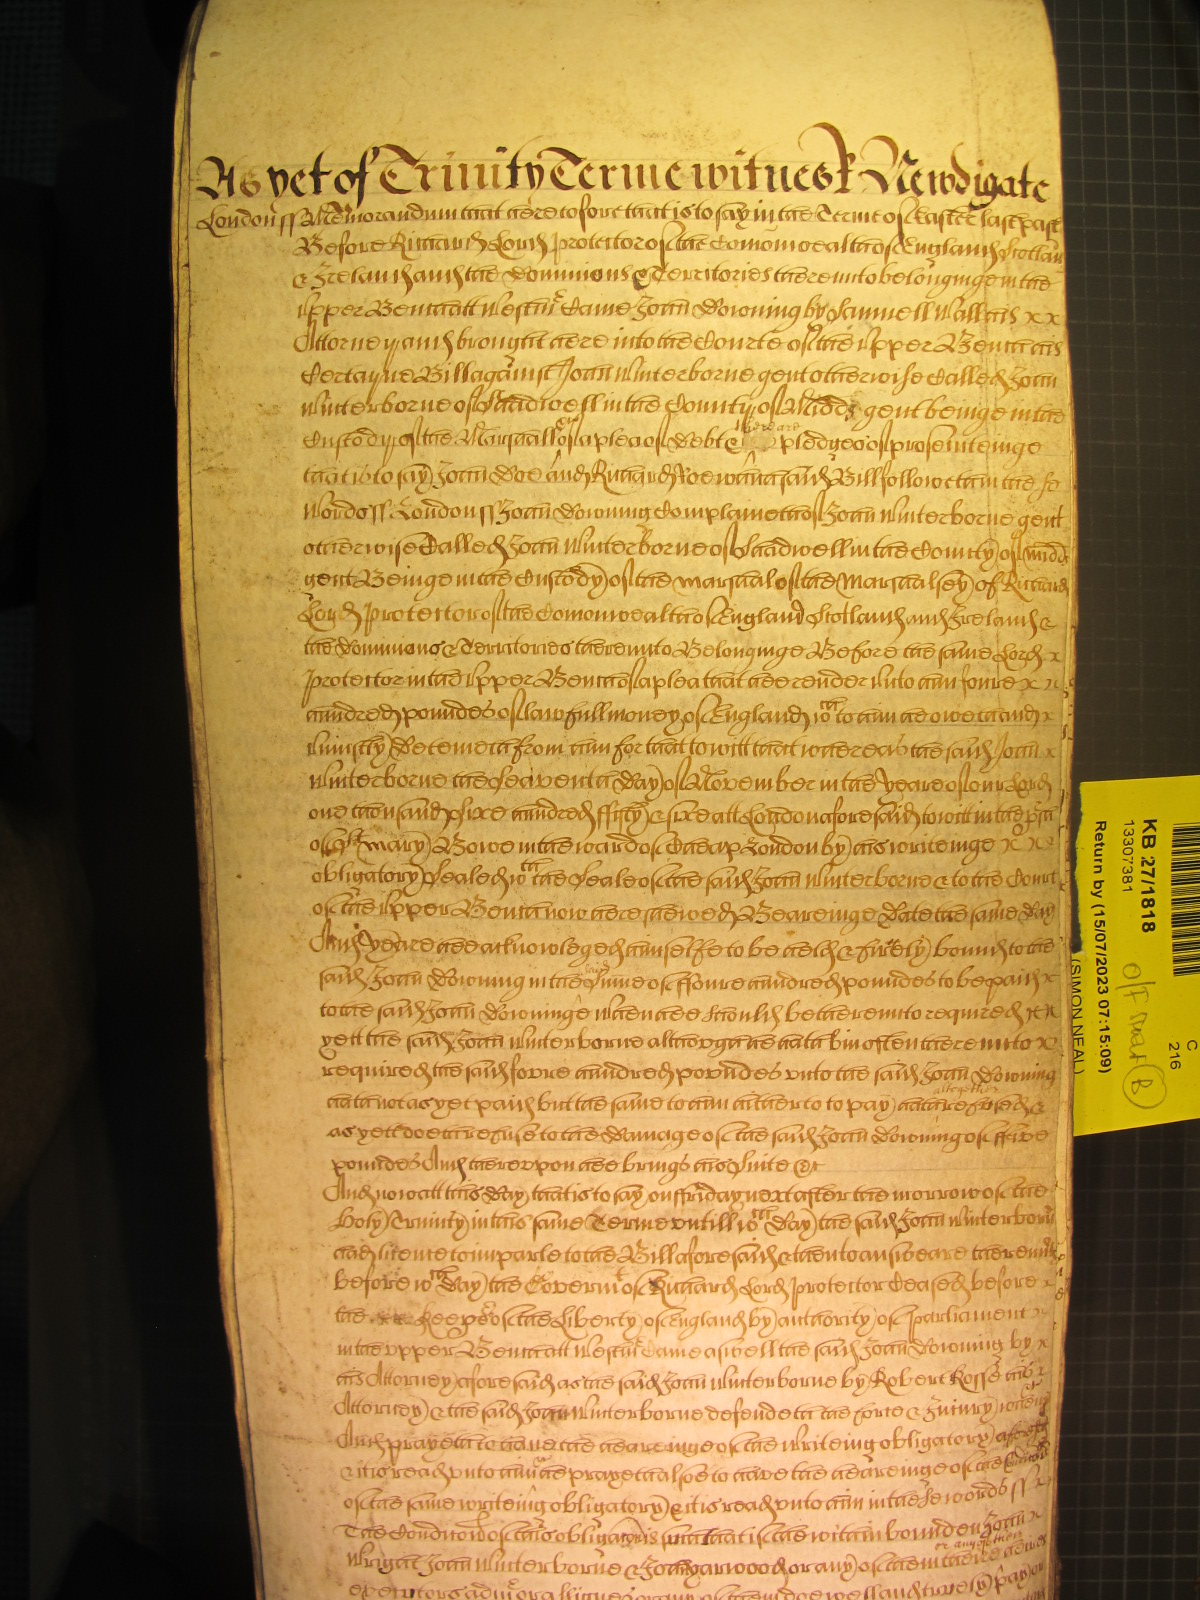 As yet of Trinity Terme witnes R Newdigate
London ss Memorandum that heretofore that is to say in the Terme of Easter last past
Before Richard Lord Protector of the Comonwealth of England Scotland
& Ireland and the Dominions & Territories thereunto belonginge in the
upper Bench att Westmr Came John Downing by Samuell Wallhis x x
Attorney and brought here into the Courte of the upper Bench his
Certayne Bill against John Winterborne gent otherwise Called John
Winterborne of Shadwell in the County of Midds gent beinge in the
Custody of the Marshall of a plea of Debt & there are pledges of prosecuteinge
that is to say John Doe And Richard Roe which said Bill followeth in these
Words ss London ss John Downing Complaineth of John Winterborne gent
otherwise Called John Winterborne of Shadwell in the County of Midds
gent Beinge in the Custody of the marshal of the Marshalsey of Richard
Lord Protector of the Comonwealth of England Scotland and Ireland &
the Dominions & Territories thereunto Belonginge Before the same Lord x
Protector in the upper Bench of a plea that hee render unto him foure x x
hundred poundes of lawfull money of England wch to him he oweth and x
uniustly Deteineth from him for that to witt that whereas the said John x
Winterborne the Seaventh Day of November in the yeare of our Lord
one thousand sixe hundred ffifty & sixe att London aforesaid to witt in the pish
of St Mary Bowe in the ward of Cheap London by his writeinge x x x
obligatory Sealed wth the Seale of the said John Winterborne & to the Court
of the upper Bench now here shewed Beareinge Date the same Day
And yeare hee acknowleged himselfe to be held & firmely bound to the
said John Downing in the said Sume of ffoure hundred poundes to be paid x
to the said John Downinge when hee should be thereunto required x x
yett the said John Winterborne although he hath bin often thereunto x
required the said fowre hundred powndes unto the said John Downing
hath not as yet paid but the same to him hitherto to pay hath altogether refused &
as yett doeth refuse to the Damage of the said John Downing of ffive
poundes And thereupon hee brings his Suite &c
And now att this Day that is to say on ffriday next after the morrow of the
Holy Trinity in this same Terme untill wch Day the said John Winterborn
had licence to imparle to the Bill aforesaid & then to answeare thereunto
before wch Day the Governmt of Richard Lord Protector Ceased before x
the Keeps of the Liberty of England by authority of Parliament x
in the upper Bench att Westmr Came aswell the said John Downing by x
his Attorney aforesaid as the said John Winterborne by Robert Rosse his x
Attorney & the said John Winterborne defendeth the force & Iniury when &c
And prayeth to have the heareinge of the Writeing obligatory aforesd
& it is read unto him he prayeth alsoe to have the heareinge of the Condicon
of the same writeing obligatory & it is read unto him in these words ss x
The Condicon of this obligacon is such that if the within bounden John x
Wright John Winterborne & John Garwood or any of them or any of their heires
executors admrs or assignes or any of them doe well and truely pay or
KB 27/1818
13307381
Return by (15/07/2023 07:15:09)
(SIMON NEAL)
C
216
B